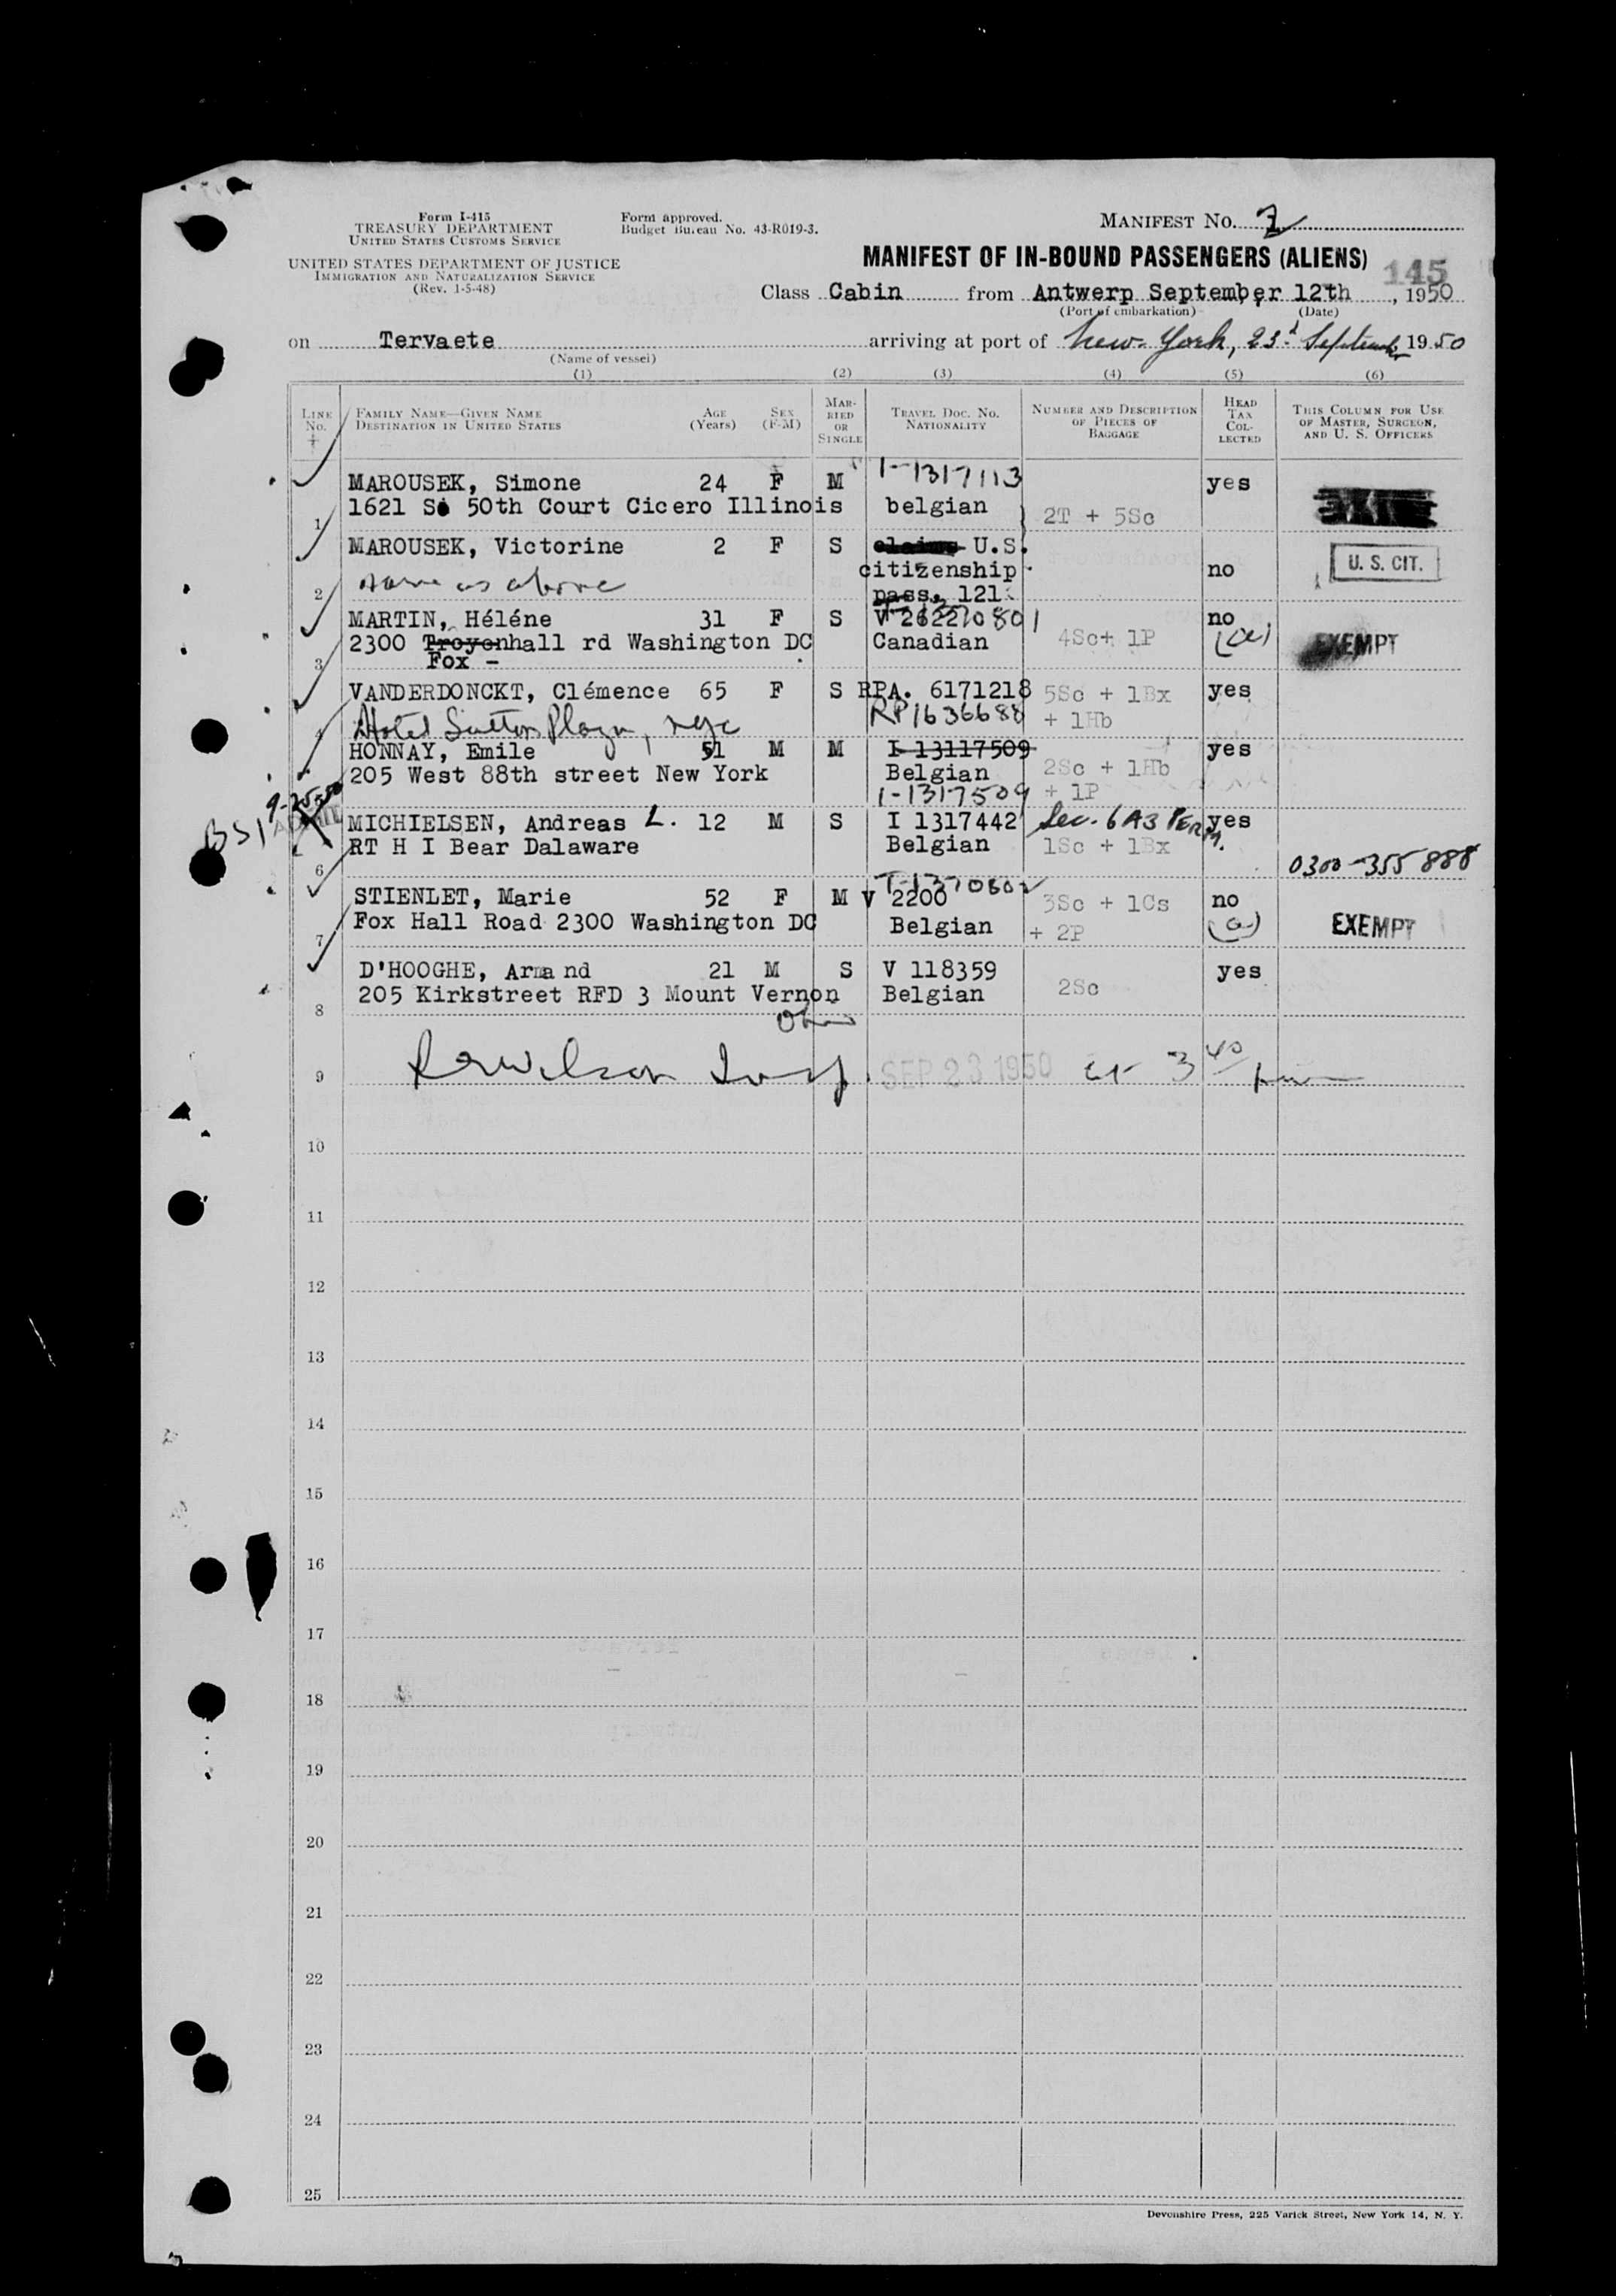 Form I-415
TREASURY DEPARTMENT
UNITED STATES CUSTOMS SERVICE
UNITED STATES DEPARTMENT OF JUSTICE
IMMIGRATION AND NATURALIZATION SERVICE
(Rev. 1-5-48)
Form approved.
Budget Bureau No. 43-R019-3.
MANIFEST No. 2
MANIFEST OF IN-BOUND PASSENGERS (ALIENS)
145
Class Cabin from Antwerp September 12th, 1950
(Port of embarkation) (Date)
on Tervaete arriving at port of New York, 23d September 1950
(Name of vessel)
(1) (2) (3) (4) (5) (6)
LINE No.
FAMILY NAME—GIVEN NAME
DESTINATION IN UNITED STATES
AGE (Years)
SEX (F-M)
MARRIED OR SINGLE
TRAVEL DOC. NO.
NATIONALITY
NUMBER AND DESCRIPTION OF PIECES OF BAGGAGE
HEAD TAX COLLECTED
THIS COLUMN FOR USE OF MASTER, SURGEON, AND U. S. OFFICERS
MAROUSEK, Simone 24 F M I-1317113 yes
1 1621 So 50th Court Cicero Illinois belgian 2T + 5Sc
MAROUSEK, Victorine 2 F S claims U.S.
citizenship no U. S. CIT.
2 same as above pass. 121
MARTIN, Héléne 31 F S V no
2300 Troyenhall rd Washington DC Canadian 4Sc+ 1P EXEMPT
3 Fox -
VANDERDONCKT, Clémence 65 F S RPA. 6171218 5Sc + 1Bx yes
4 Hotel Sutton Plaza, nyc RP1636688 + 1Hb
HONNAY, Emile 51 M M I 13117509 yes
205 West 88th street New York Belgian 2Sc + 1Hb
I-1317509 + 1P
BSI 9-25-50
MICHIELSEN, Andreas L. 12 M S I 1317442 Sec. 6A3 PERM. yes
RT H I Bear Dalaware Belgian 1Sc + 1Bx
6 0300-355888
STIENLET, Marie 52 F M V 2200 T-1370802 3Sc + 1Cs no
Fox Hall Road 2300 Washington DC Belgian + 2P (a) EXEMPT
7
D'HOOGHE, Armand 21 M S V 118359 yes
205 Kirkstreet RFD 3 Mount Vernon Belgian 2Sc
8 Ohio
9 Wilson Insp. SEP 23 1950 at 3 40 pm
10
11
12
13
14
15
16
17
18
19
20
21
22
23
24
25
Devonshire Press, 225 Varick Street, New York 14, N. Y.